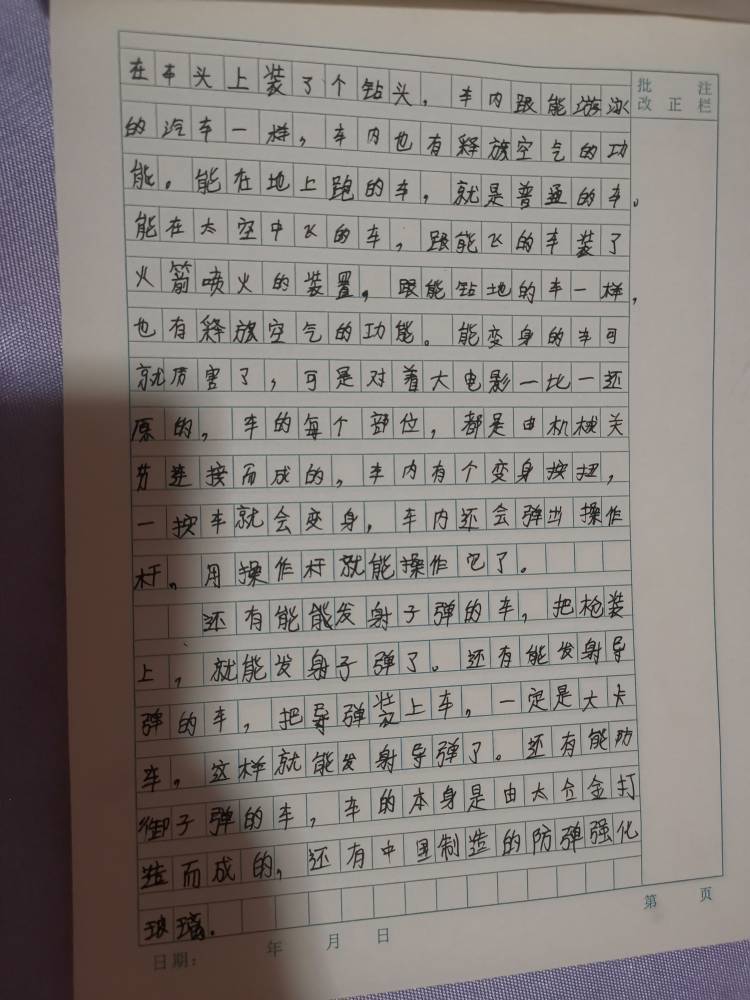 在车头上装了个钻头，车内跟能游泳
批 注
改正栏
的汽车一样，车内也有释放空气的功
能。能在地上跑的车，就是普通的车。
能在太空中飞的车，跟能飞的车装了
火箭喷火的装置，跟能钻地的车一样，
也有释放空气的功能。能变身的车可
就厉害了，可是对着大电影一比一还
原的，车的每个部位，都是由机械关
节连接而成的，车内有个变身按扭，
一按车就会变身，车内还会弹出操作
杆。用操作杆就能操作它了。
还有能能发射子弹的车，把枪装
上，就能发射子弹了。还有能发射导
弹的车，把导弹装上车，一定是大卡
车，这样就能发射导弹了。还有能防
御子弹的车，车的本身是由太合金打
造而成的，还有中国制造的防弹强化
玻璃.
第 页
日期： 年 月 日